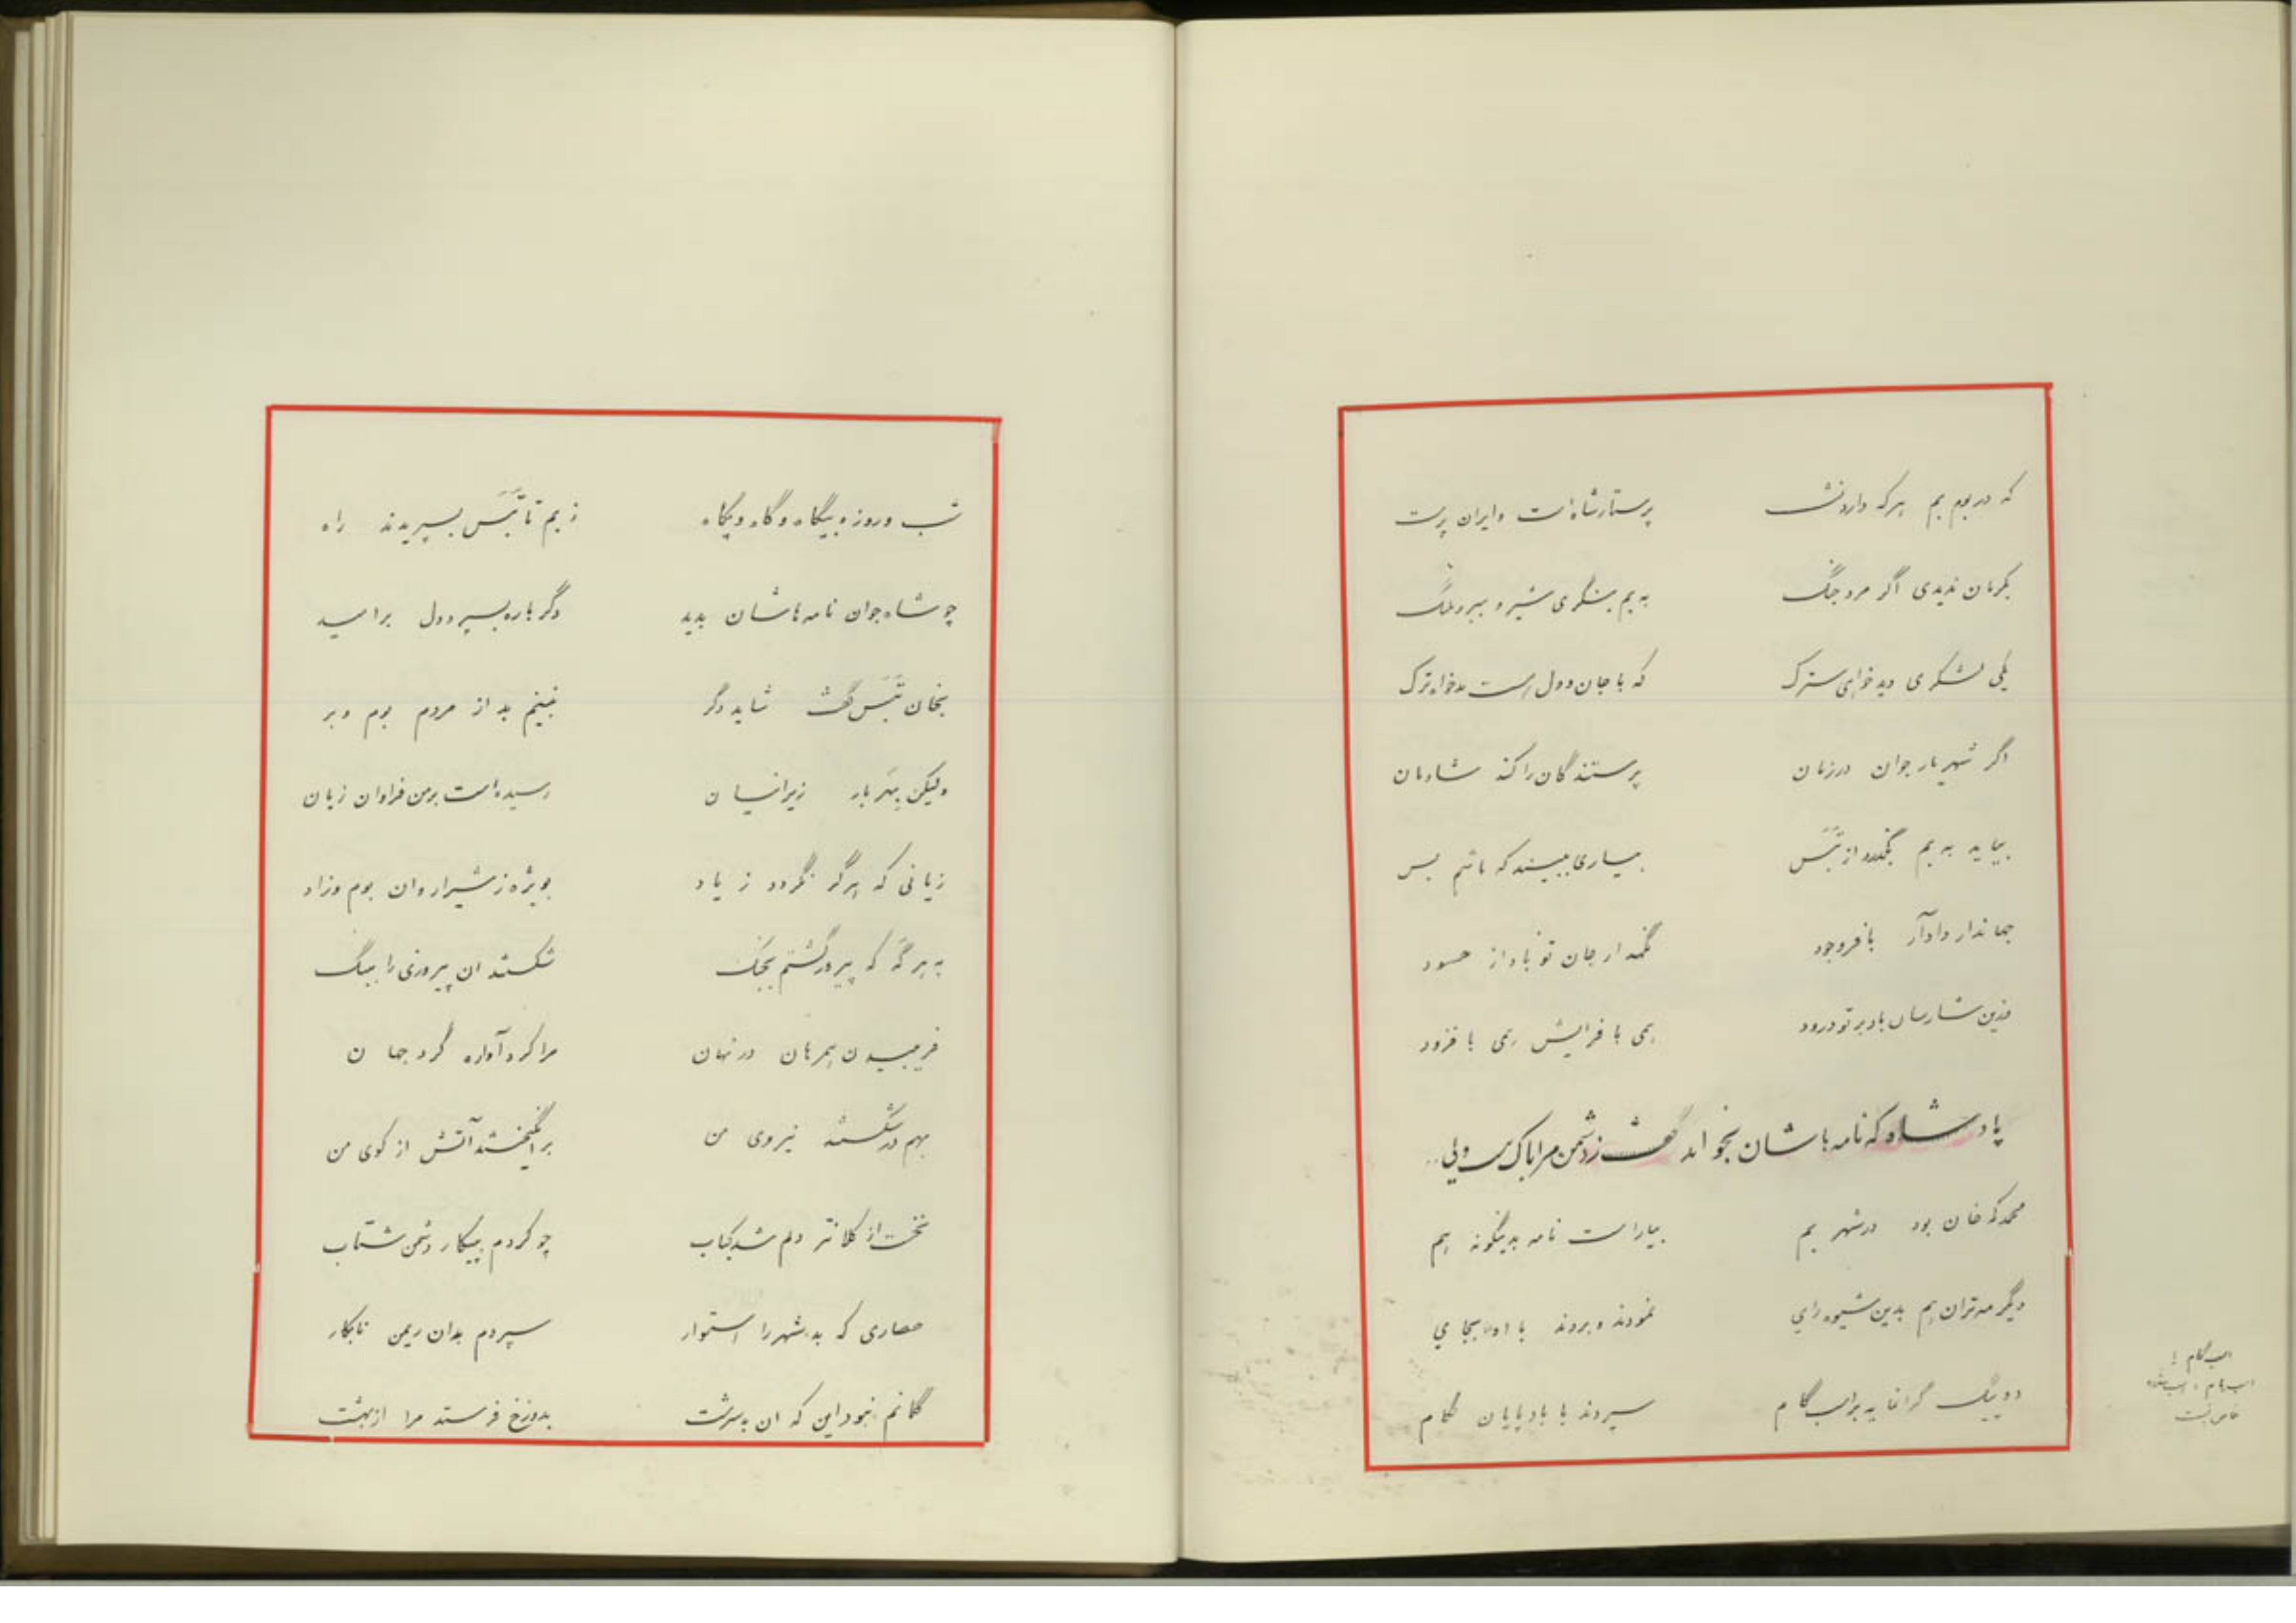 که در بوم بم هرکه دارد نشست پرستار شاه است و ایران پرست
بکرمان ندیدی اگر مرد جنگ به بم بنگری شیر و ببر و پلنگ
یکی لشکری دید خواهی سترک که با جان و دل است بدخواه ترک
اگر شهریار جوان در زمان پرستندگان را کند شادمان
بیاید به بم بگذرد از تَبَس بیاری ببیند که مائیم بس
جهاندار دادآر با فر و جود نگهدار جان تو باد از حسود
وزین شارسان باد بر تو درود همی با فزایش همی با فزود
پادشاه که نامه هاشان بخواند گفت ز دشمن مرا باک نیست ولی..
محمد که خان بود در شهر بم بیاراست نامه بدینگونه هم
دیگر مهتران هم بدین شیوه رای نمودند و بردند با او بجای
دو پیک گرانمایه براسب گام سپردند با بادپایان لگام
اسب گام :
شب و روز و بیگاه و گاه و پگاه ز بم تا تَبَس بسپریدند راه
چو شاه جوان نامه هاشان بدید دگرباره بسپرد دل بر امید
بخان تَبَس گفت شاید دگر نبینم بد از مردم بوم و بر
ولیکن بهر بار زیرانیان رسیده است بر من فراوان زیان
زیانی که هرگز نگردد ز یاد بویژه ز شیراز و ان بوم و زاد
به هر گه که پیروز گشتم بجنگ شکستند ان پیروزی را بسنگ
فریبیدن همرهان در نهان مرا کرد آواره گرد جهان
بهم در شکستند نیروی من برانگیختند آتش از کوی من
نخست از کلانتر دلم شد کباب چو کردم به پیکار دشمن شتاب
حصاری که بد شهر را استوار سپردم بدان ریمن نابکار
گمانم نبود این که ان بدسرشت بدوزخ فرستد مرا از بهشت